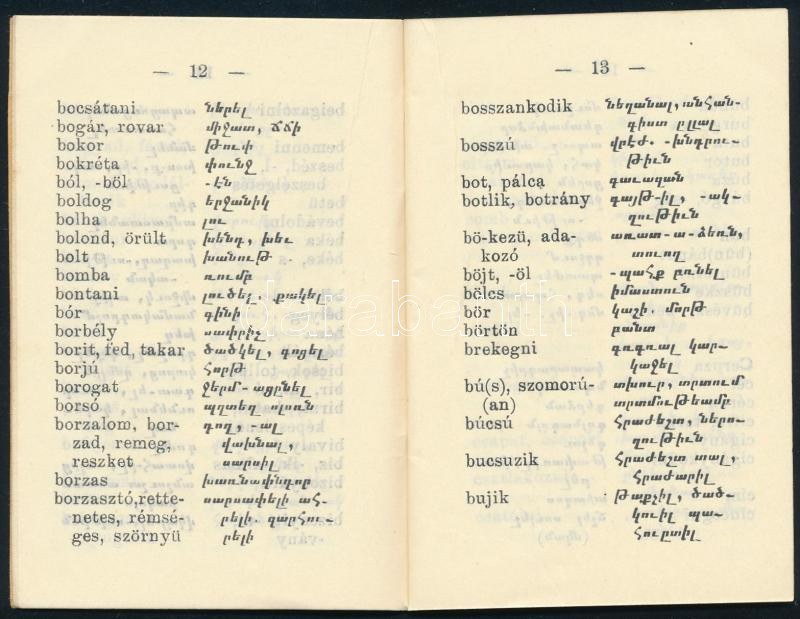 — 12 —
bocsátani ներել
bogár, rovar միջատ, ճճի
bokor թուփ
bokréta փունջ
ból, -böl -էն
boldog երջանիկ
bolha լու
bolond, örült խենդ, խեւ
bolt խանութ
bomba ռումբ
bontani լուծել. քակել
bór գինի
borbély սափրիչ
borit, fed, takar ծածկել, գոցել
borjú հորթ
borogat ջերմ-ացընել
borsó պզտեղ ոլոռն
borzalom, bor- դող, -ալ
zad, remeg, վախնալ,
reszket սարսիլ
borzas խառնափնդոր
borzasztó, rette- սարսափելի ահ-
netes, rémsé- րելի. զարհու-
ges, szörnyü րելի
— 13 —
bosszankodik նեղանալ, անհան-
գիստ ըլլալ
bosszú վրէժ. -խնդրու-
թիւն
bot, pálca գաւազան
botlik, botrány գայթ-իլ, -ակ-
ղութիւն
bö-kezü, ada- առատ-ա-ձեռն,
kozó տուող
böjt, -öl -պահք բռնել
bölcs իմաստուն
bör կաշի. մորթ
börtön բանտ
brekegni գռգռալ կար-
կաջել
bú(s), szomorú- տխուր, տրտում,
(an) տրտմութեամբ
búcsú հրաժեշտ, ներո-
ղութիւն
bucsuzik հրաժեշտ տալ,
հրաժարիլ
bujik թաքչիլ, ծած-
կուիլ պա-
հուըտիլ